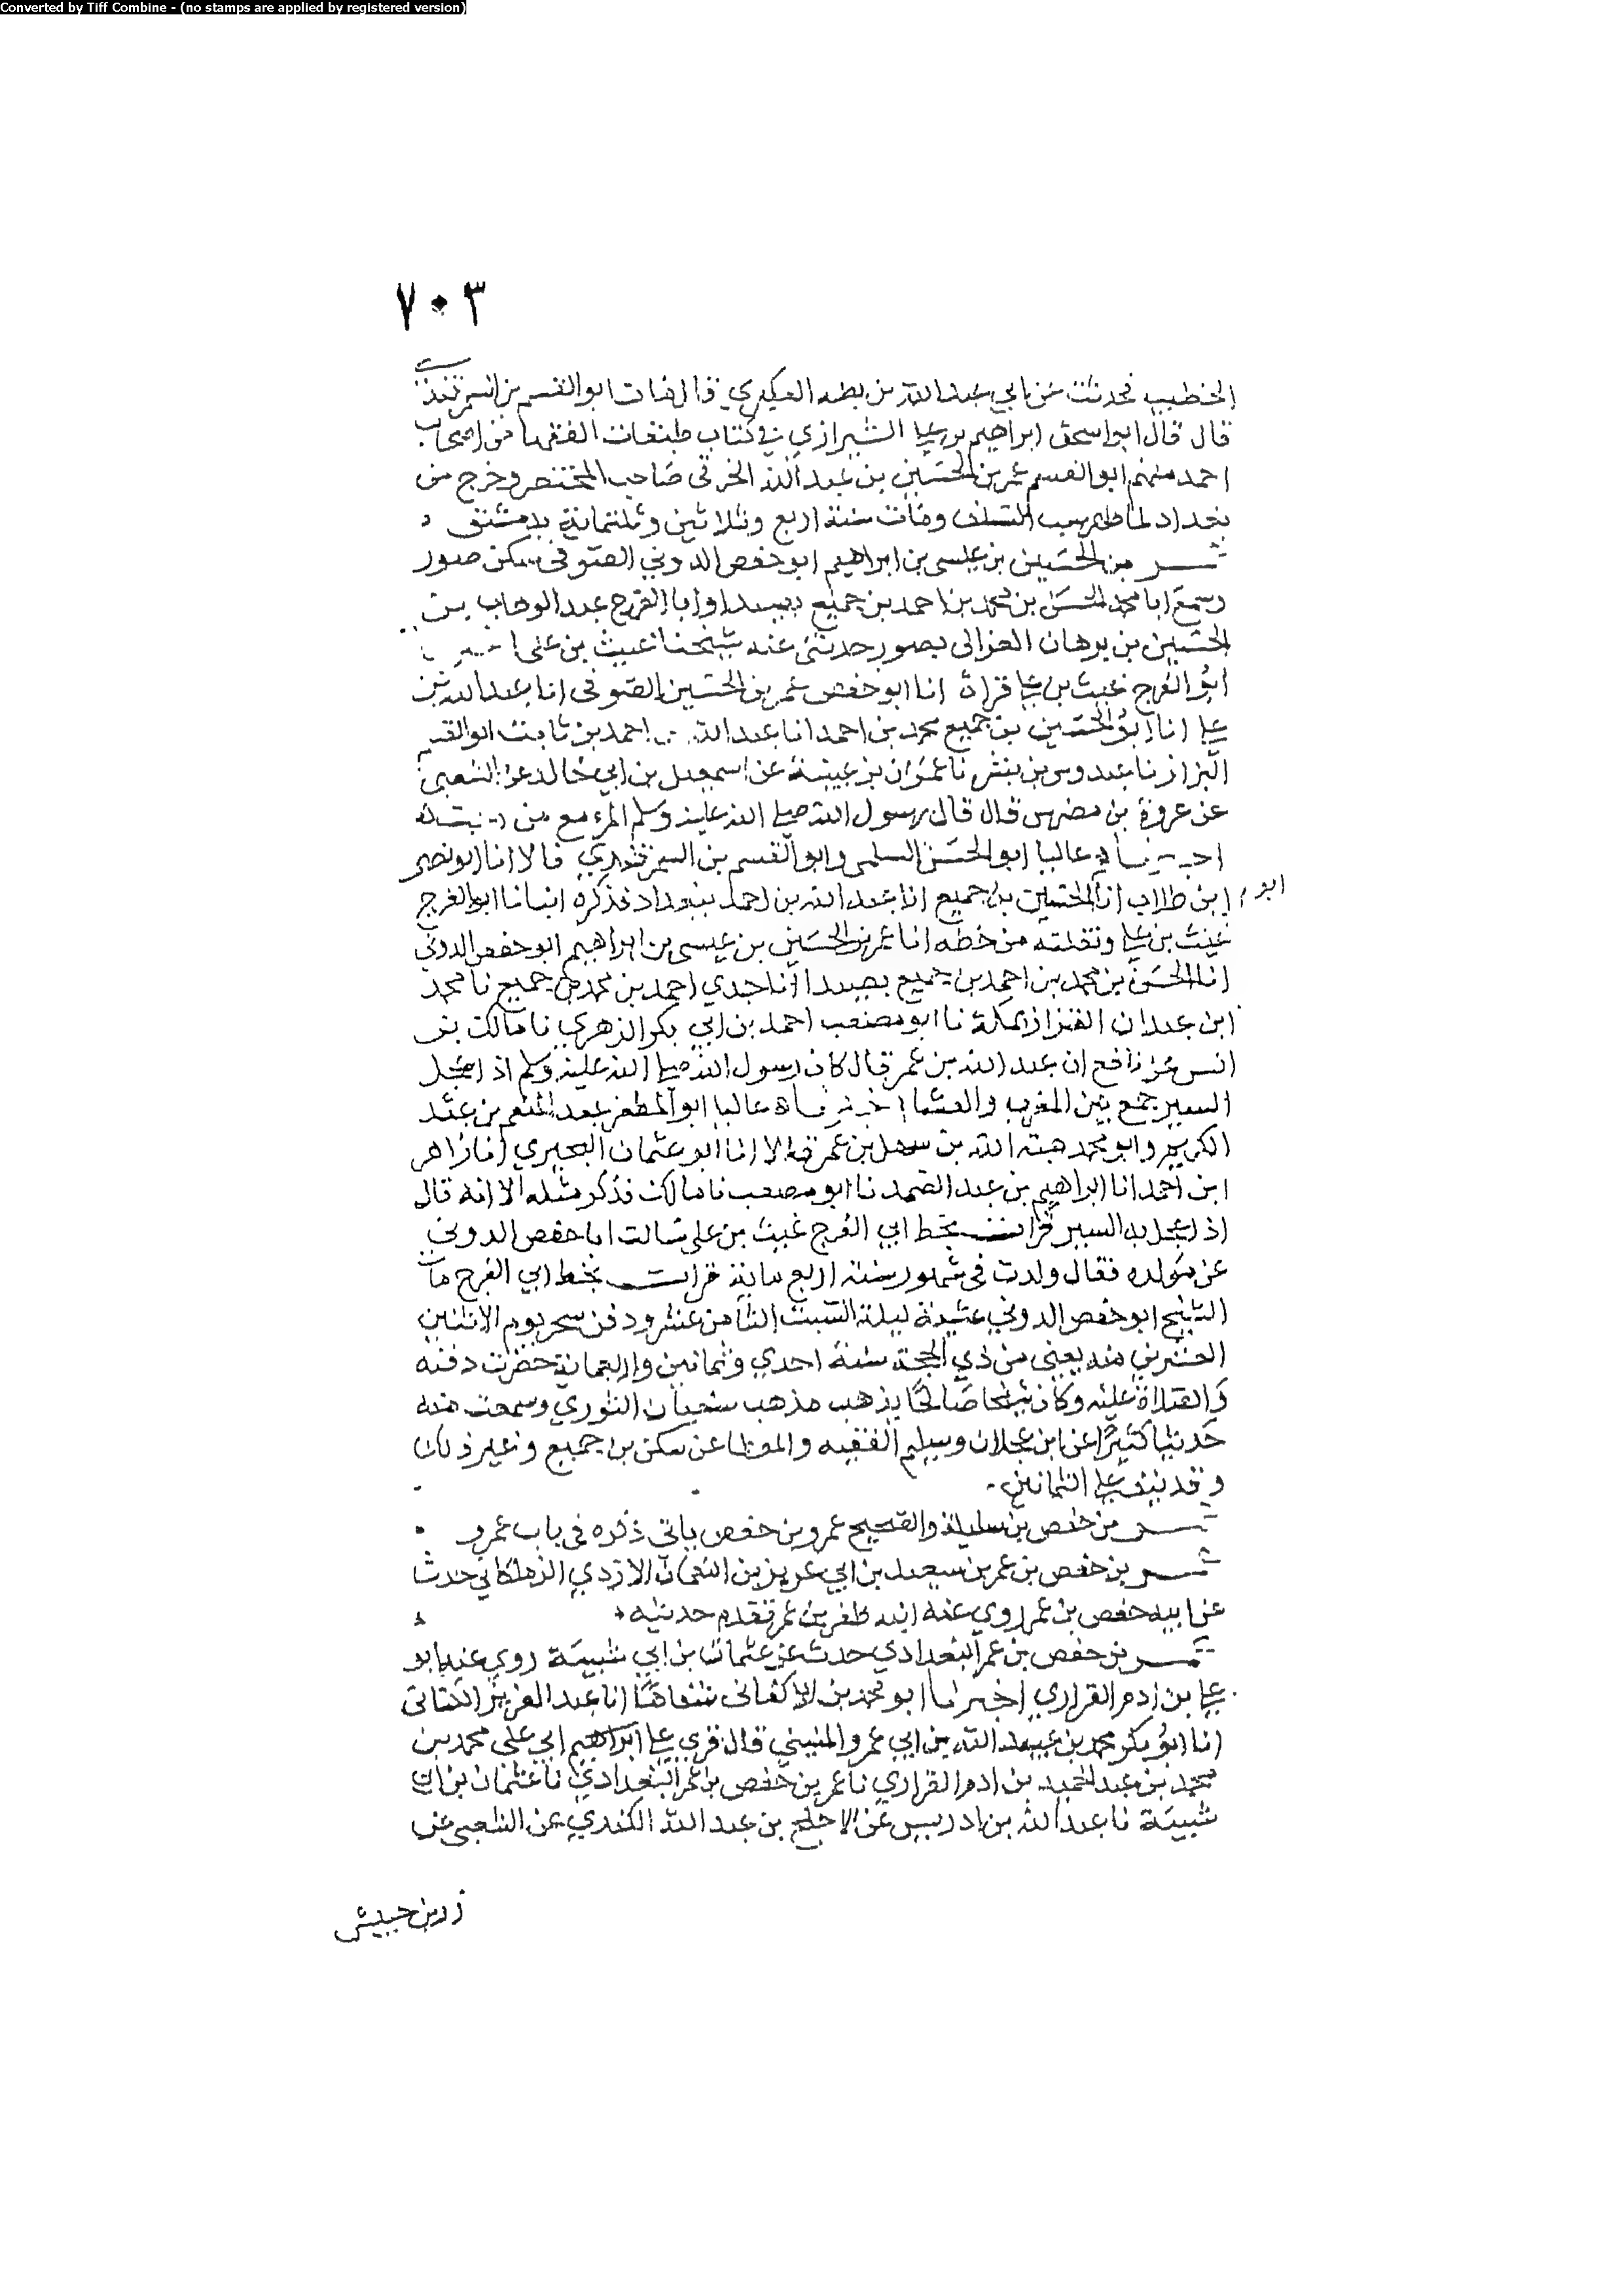 Converted by Tiff Combine - (no stamps are applied by registered version)
٧٠٣
الخطيب فحدثت عن ابي عبد الله بن بطه العكبري قال مات ابو القسم بن السمرقندي
قال قال ابو اسحق ابراهيم بن علي الشيرازي في كتاب طبقات الفقها من اصحاب
احمد منهم ابو القسم عمر بن الحسين بن عبد الله الخرقي صاحب المختصر وخرج من
بغداد لما ظهر سب السلف ومات سنة اربع وثلاثين وثلثماية بدمشق
عمر بن الحسين بن عيسى بن ابراهيم ابو حفص الدوني الصوفي سكن صور
وسمع ابا محمد الحسن بن محمد بن احمد بن جميع بصيدا وابا الفرج عبد الوهاب بن
الحسين بن برهان الغزال بصور حدثني عنه شيخنا غيث بن علي
ابو الفرج غيث بن علي قراة انا ابو حفص عمر بن الحسين الصوفي انا عبد الله بن
علي انا ابو الحسين بن جميع محمد بن احمد انا عبد الله بن احمد بن ثابت ابو القسم
البزاز نا عبدوس بن بشر نا عمران بن عيينة عن اسمعيل بن ابي خالد عن الشعبي
عن عروة بن مضرس قال قال رسول الله صلى الله عليه وسلم المرء مع من
عاليا ابو الحسن السلمي وابو القسم بن السمرقندي قالا انا ابو نصر
ابن طلاب انا الحسين بن جميع انا عبد الله بن احمد ببغداد فذكره انبانا ابو الفرج
ابو
غيث بن علي ونقلته من خطه انا عمر بن الحسين بن عيسى بن ابراهيم ابو حفص الدوني
انا الحسن بن محمد بن احمد بن جميع بصيدا انا جدي احمد بن محمد بن جميع نا محمد
ابن عبدان القزاز بمكة نا ابو مصعب احمد بن ابي بكر الزهري نا مالك بن
انس عن نافع ان عبد الله بن عمر قال كان رسول الله صلى الله عليه وسلم اذا عجل
السير جمع بين المغرب والعشا عاليا ابو المظفر عبد المنعم بن عبد
الكريم وابو محمد هبة الله بن سهل بن عمر قالا انا ابو عثمان البحيري انا زاهر
ابن احمد انا ابراهيم بن عبد الصمد نا ابو مصعب نا مالك فذكر مثله الا انه قال
اذا عجل به السير قرات بخط ابي الفرج غيث بن علي سالت ابا حفص الدوني
عن مولده فقال ولدت في شهور سنة اربع ماية قرات بخط ابي الفرج مات
الشيخ ابو حفص الدوني عشية ليلة السبت الثامن عشر ودفن سحر يوم الاثنين
العشرين منه يعني من ذي الحجة سنة احدي وثمانين واربعماية حضرت دفنه
والصلاة عليه وكان شيخا صالحا يذهب مذهب سفيان الثوري وسمعت منه
حديثا كثيرا عن ابن عجلان وسليم الفقيه والموطا عن سكن بن جميع وغير ذلك
وقد نيف علي الثمانين
عمر بن حفص بن سليلة والصحيح عمرو بن حفص ياتي ذكره في باب عمرو
عمر بن حفص بن عمر بن سعيد بن ابي عزيز بن النعمان الازدي الزملكاني حدث
عن ابيه حفص بن عمر روي عنه ابنه ظفر بن عمر تقدم حديثه
عمر بن حفص بن عمر البغدادي حدث عن عثمان بن ابي شيبة روي عنه ابو
علي بن ادم الفزاري اخبرنا ابو محمد بن الاكفاني شفاها انا عبد العزيز الكتاني
انا ابو بكر محمد بن عبيد الله بن ابي عمرو المنيني قال قري علي ابراهيم ابي علي محمد بن
محمد بن عبد الحميد بن ادم الفزاري نا عمر بن حفص بن عمر البغدادي نا عثمان بن ابي
شيبة نا عبد الله بن ادريس عن الاجلح بن عبد الله الكندي عن الشعبي عن
زر بن حبيش